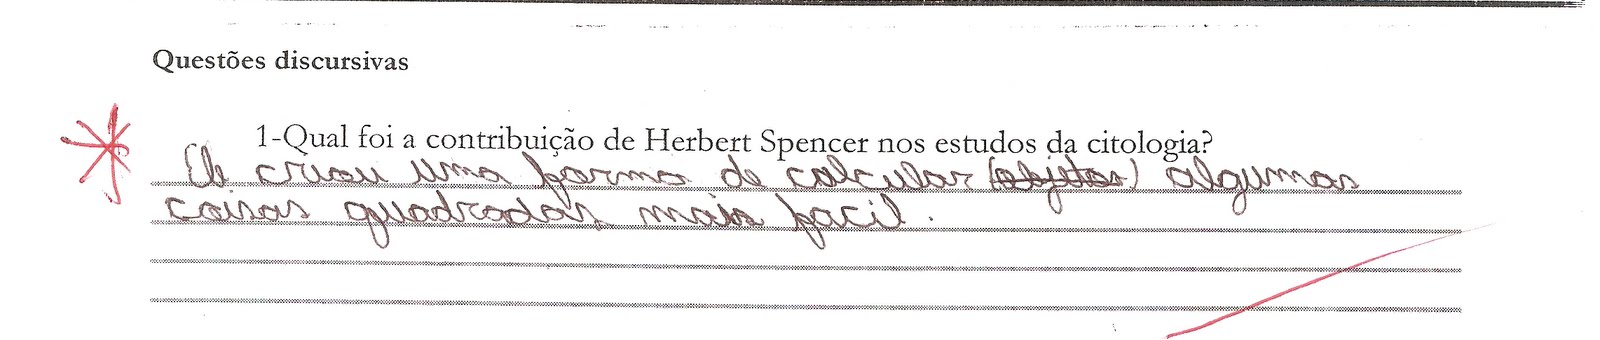 Questões discursivas
1-Qual foi a contribuição de Herbert Spencer nos estudos da citologia?
Ele criou uma forma de calcular (objetos) algumas
coisas quadradas, mais facil.